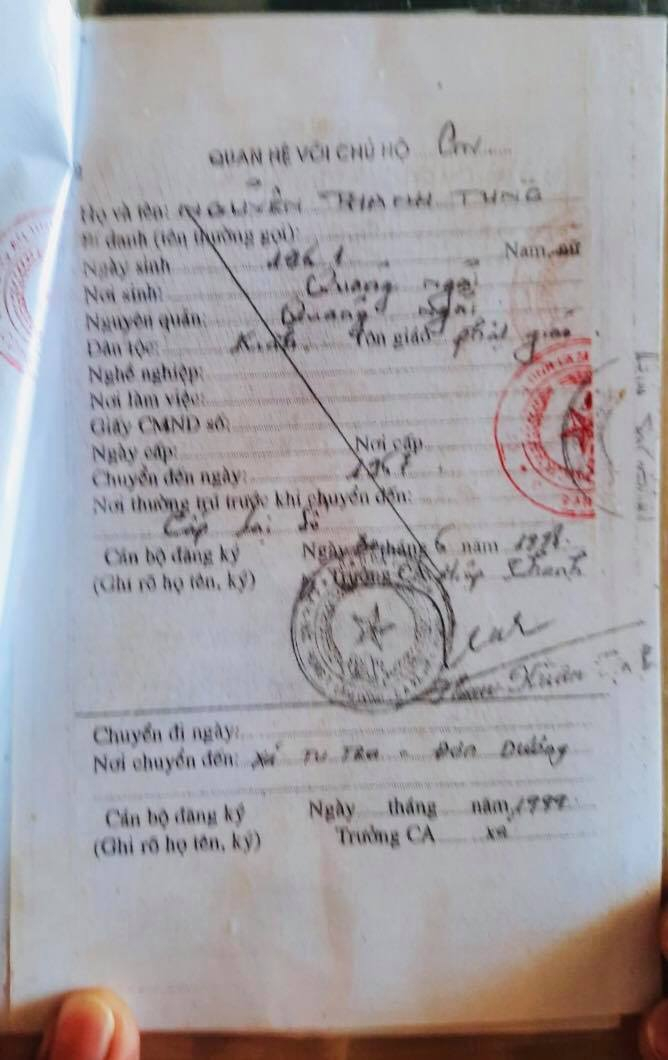 QUAN HỆ VỚI CHỦ HỘ Con
Họ và tên: NGUYỄN THANH TÙNG
Bí danh (tên thường gọi):
Ngày sinh 1961 Nam, nữ
Nơi sinh: Quảng ngãi
Nguyên quán: Quảng ngãi
Dân tộc: Kinh Tôn giáo phật giáo
Nghề nghiệp:
Nơi làm việc:
Giấy CMND số:
Ngày cấp: Nơi cấp
Chuyển đến ngày:
Nơi thường trú trước khi chuyển đến:
Cấp lại sổ
Cán bộ đăng ký Ngày tháng 6 năm 1998
(Ghi rõ họ tên, ký) Trưởng CA Hiệp Thạnh
Xuân
Chuyển đi ngày:
Nơi chuyển đến: xã Tu Tra - Đơn Dương
Cán bộ đăng ký Ngày tháng năm 1999
(Ghi rõ họ tên, ký) Trưởng CA xã